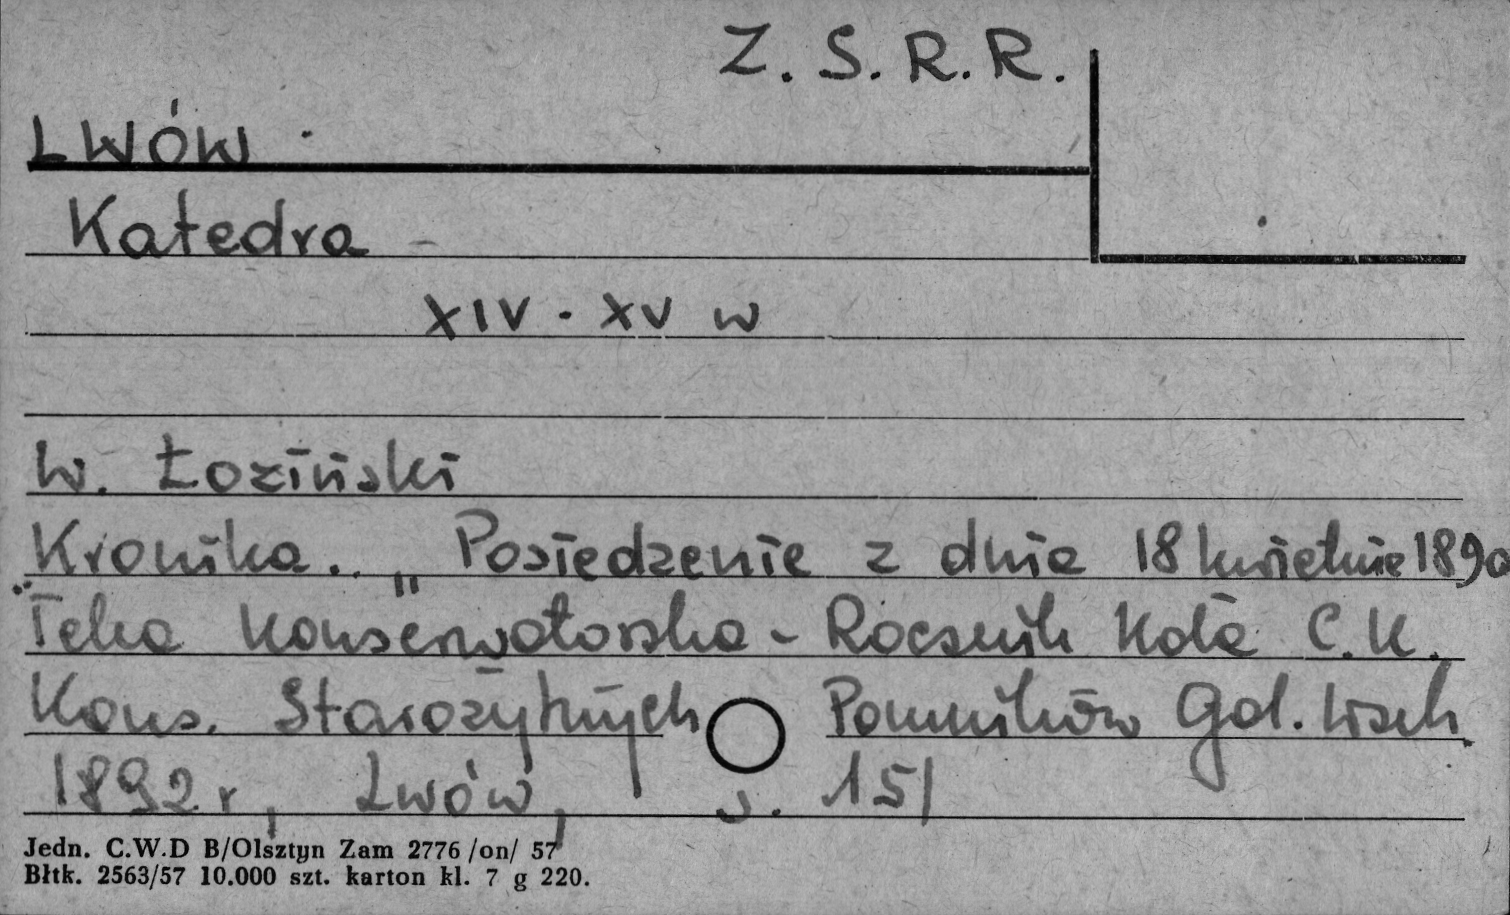 Z. S. R. R.
LWÓW
Katedra
XIV - XV w
W. Łoziński
Kronika. „Posiedzenie z dnia 18 kwietnia 1890
"Teka Konserwatorska - Rocznik Koła C.K.
Kons. Starożytnych Pomników Gal. Wsch.
1892 r, Lwów, s. 151
Jedn. C.W.D B/Olsztyn Zam 2776 /on/ 57
Błtk. 2563/57 10.000 szt. karton kl. 7 g 220.